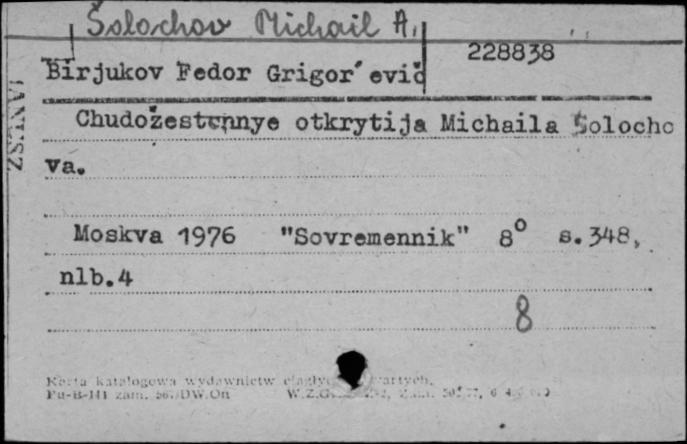 Šolochov Michail A.
228838
Birjukov Fedor Grigor´evič
Chudožestennye otkrytija Michaila Šolocho
va.
Moskva 1976 "Sovremennik" 8° s.348,
nlb.4
8
Karta katalogowa wydawnictw
Pu-B-111 zam. DW.On